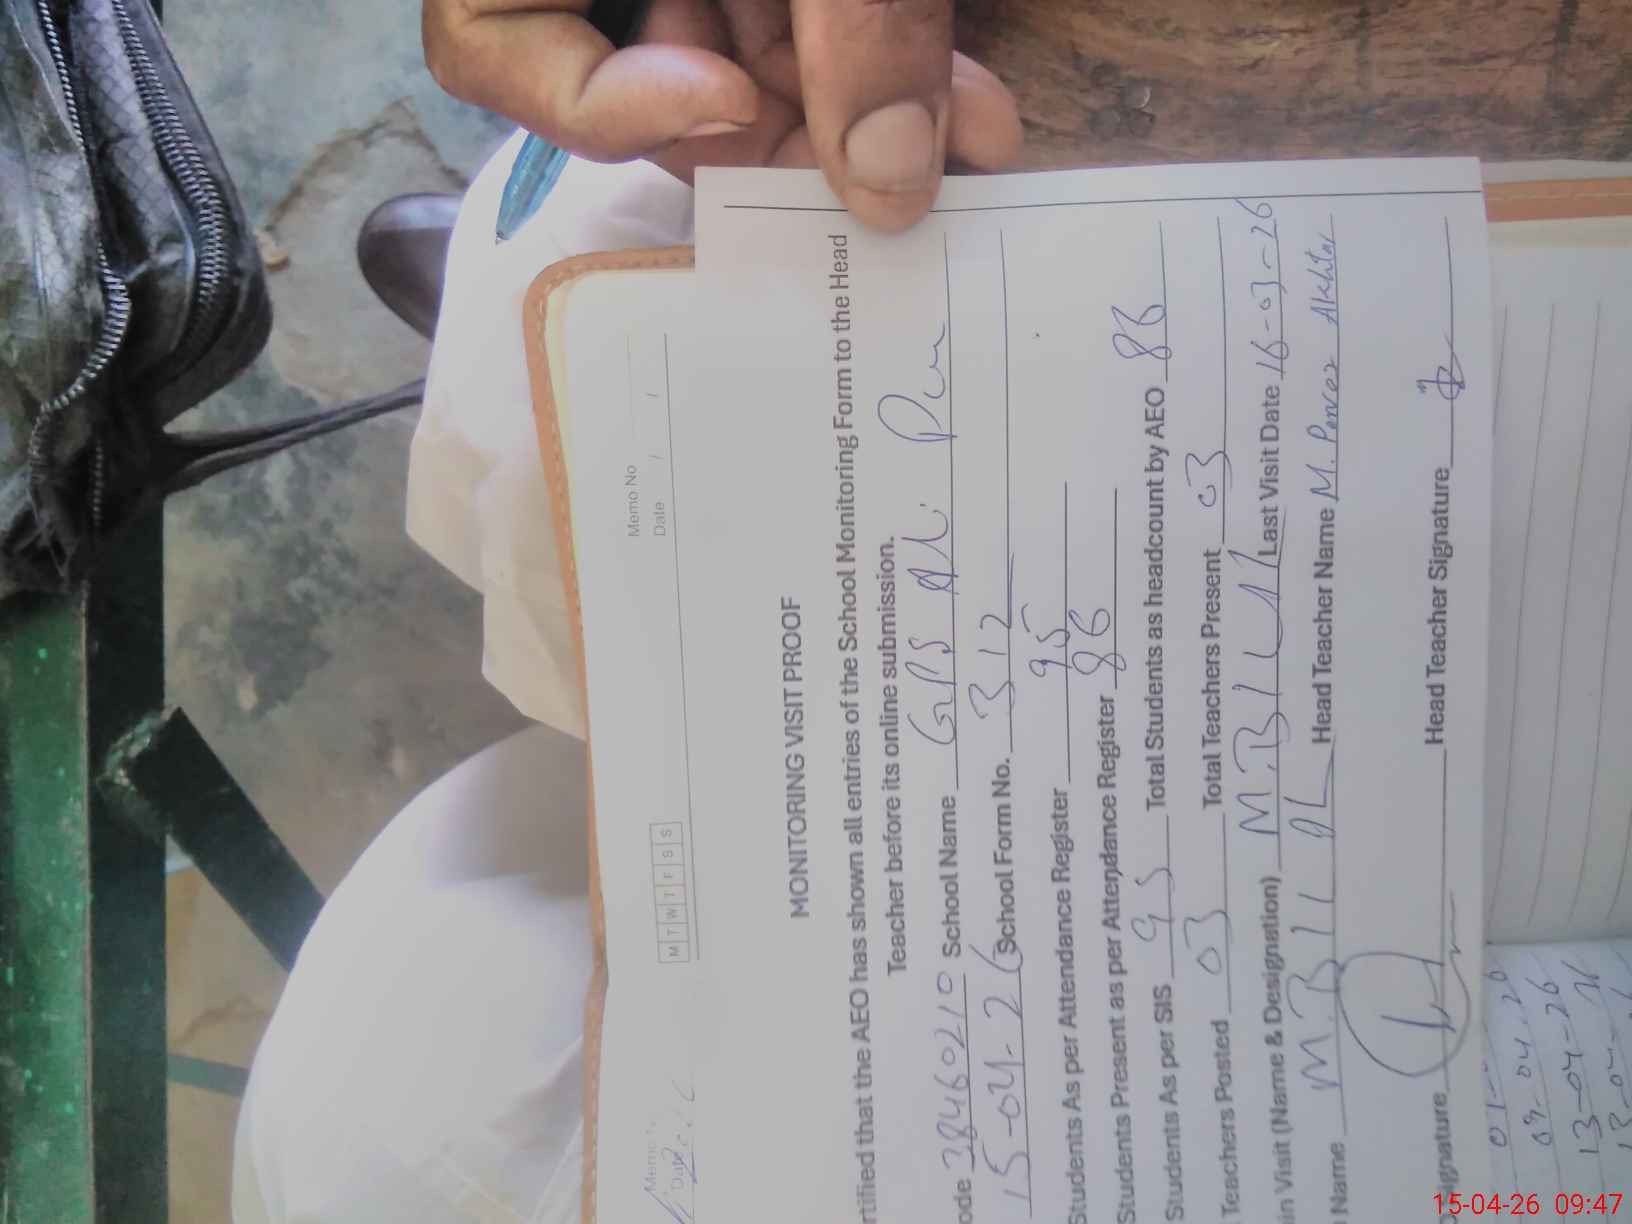 Memo No
Date / /
M T W T F S S
Date
MONITORING VISIT PROOF
rtified that the AEO has shown all entries of the School Monitoring Form to the Head
Teacher before its online submission.
ode 38460210 School Name GPS Ali Pur
15-04-26 School Form No. 312
Students As per Attendance Register 95
Students Present as per Attendance Register 86
Students As per SIS 95 Total Students as headcount by AEO 86
Teachers Posted 03 Total Teachers Present 03
in Visit (Name & Designation) M. BILAL Last Visit Date 16-03-26
Name M. BILAL Head Teacher Name M. Parvez Akhtar
Signature Head Teacher Signature
09-04-26
13-04-26
15-04-26 09:47